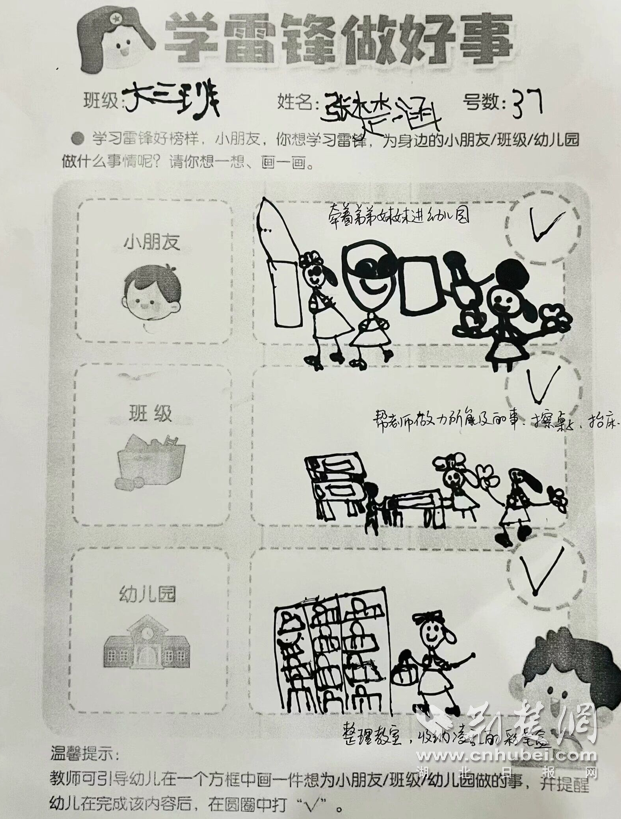 学雷锋做好事
班级:大三班 姓名:张楚涵 号数:37
● 学习雷锋好榜样，小朋友，你想学习雷锋，为身边的小朋友/班级/幼儿园
做什么事情呢？请你想一想、画一画。
牵着弟弟妹妹进幼儿园
小朋友
帮老师做力所能及的事、擦桌子、抬床
班级
幼儿园
整理教室，收纳
荆楚网
湖北日报网
温馨提示:
教师可引导幼儿在一个方框中画一件想为小朋友/班级/幼儿园做的事，并提醒
幼儿在完成该内容后，在圆圈中打“√”。